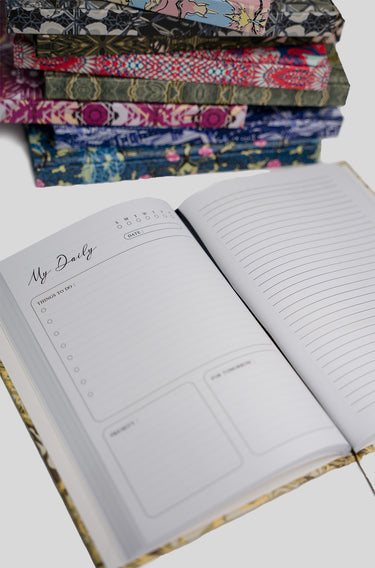 S M T W T F S
DATE:
My Daily
THINGS TO DO :
PRIORITY :
FOR TOMORROW :